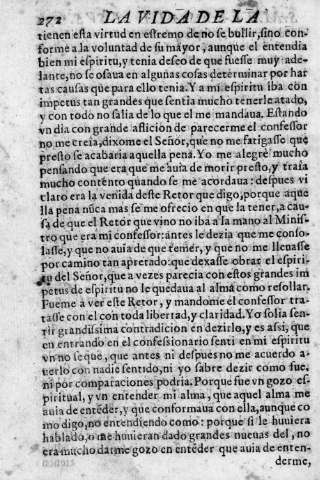 272 LA VIDA DE LA
tienen esta virtud en estremo de no se bullir, sino con-
forme a la voluntad de su mayor, aunque el entendia
bien mi espiritu, y tenia deseo de que fuesse muy ade-
lante, no se osaua en algunas cosas determinar por har
tas causas que para ello tenia. Y a mi espiritu iba con
impetus tan grandes que sentia mucho tenerle atado,
y con todo no salia de lo que el me mandaua. Estando
vn dia con grande aflicion de parecerme el confessor
no me creia, dixome el Señor, que no me fatigasse que
presto se acabaria aquella pena. Yo me alegrè mucho
pensando que era que me auia de morir presto, y traîa
mucho contento quando se me acordaua: despues vi
claro era la venida deste Retor que digo, porque aque
lla pena nũca mas se me ofrecio en que la tener, a cau-
sa de que el Retor que vino no iba a la mano al Minis-
tro que era mi confessor: antes le dezia que me conso-
lasse, y que no auia de que temer, y que no me lleuasse
por camino tan apretado: que dexasse obrar el espiri-
tu del Señor, que a vezes parecia con estos grandes im
petus de espiritu no le quedaua al alma como resollar.
Fueme a ver este Retor, y mandome el confessor tra-
tasse con el con toda libertad, y claridad. Yo solia sen-
tir grandissima contradicion en dezirlo, y es assi, que
en entrando en el confessionario senti en mi espiritu
vn no se què, que antes ni despues no me acuerdo a-
uerlo con nadie sentido, ni yo sabre dezir como fue,
ni por comparaciones podria. Porque fue vn gozo es-
piritual, y vn entender mi alma, que aquel alma me
auia de entẽder, y que conformaua con ella, aunque co
mo digo, no entendiendo como: porque si le huuiera
hablado, o me huuieran dado grandes nueuas del, no
era mucho darme gozo en entẽder que auia de enten-
derme,